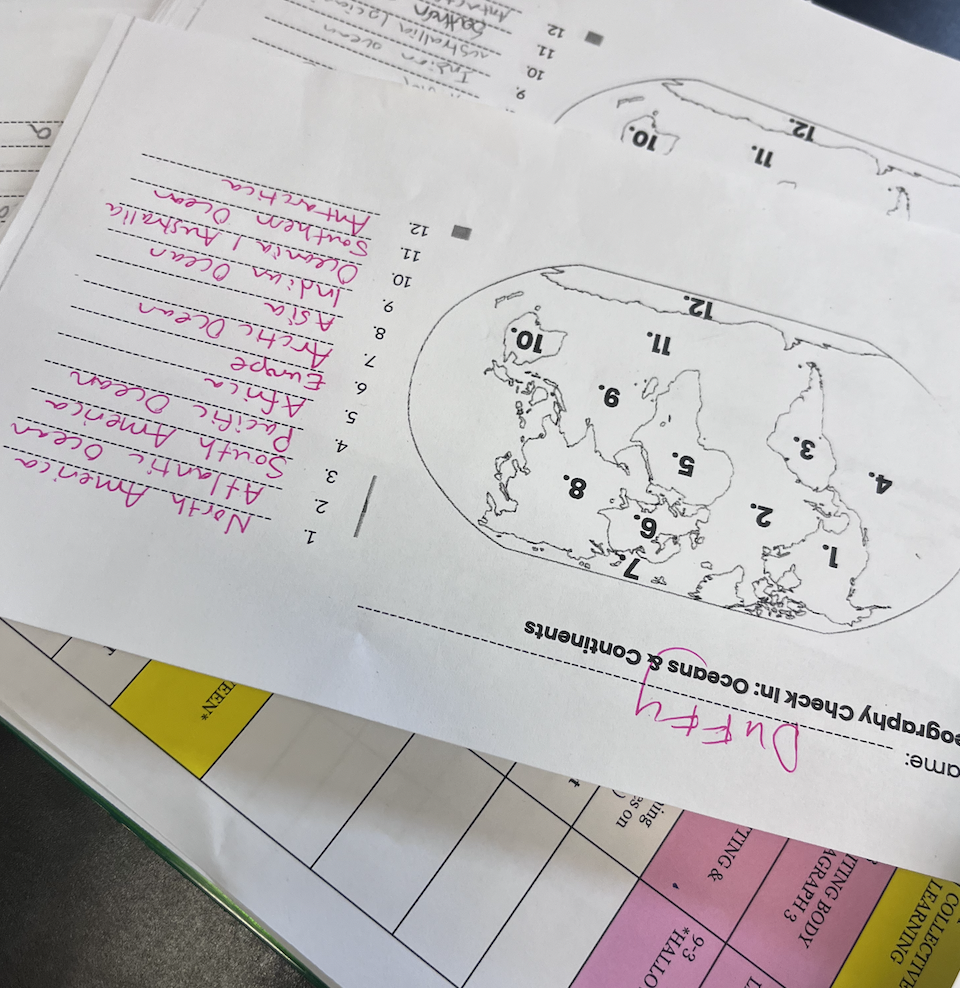 ame:
Duffy
eography Check In: Oceans & Continents
1.
2.
3.
4.
5.
6.
7.
8.
9.
10.
11.
12.
1. North America
2. Atlantic Ocean
3. South America
4. Pacific Ocean
5. Africa
6. Europe
7. Arctic Ocean
8. Asia
9. Indian Ocean
10. Oceania / Australia
11. Southern Ocean
12. Antarctica
10.
11.
12.
9.
10. Indian ocean
11.
12.
COLLECTIVE
LEARNING
TING BODY
AGRAPH 3
TING &
ing
es on
9-3
*HALLO
EEN*